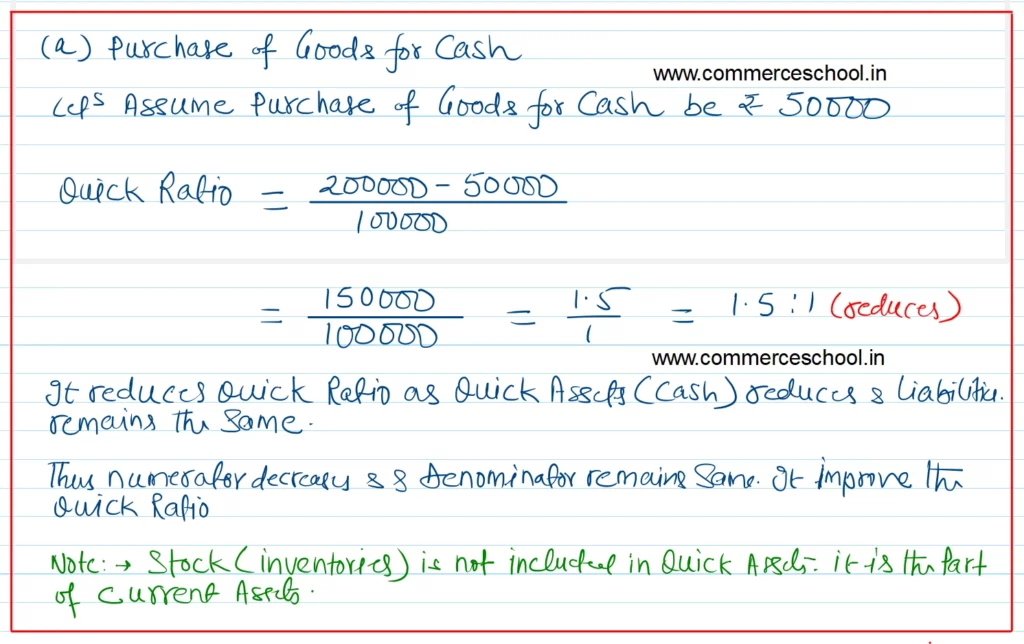 (a) Purchase of Goods for Cash
www.commerceschool.in
Let's Assume Purchase of Goods for Cash be ₹ 50000
Quick Ratio = 200000 - 50000 / 100000
= 150000 / 100000 = 1.5 / 1 = 1.5 : 1 (reduces)
www.commerceschool.in
It reduces Quick Ratio as Quick Assets (Cash) reduces & liabilities.
remains the same.
Thus numerator decreases & & denominator remains same. It improve the
Quick Ratio
Note: → Stock (inventories) is not included in Quick Assets. it is the Part
of Current Assets.